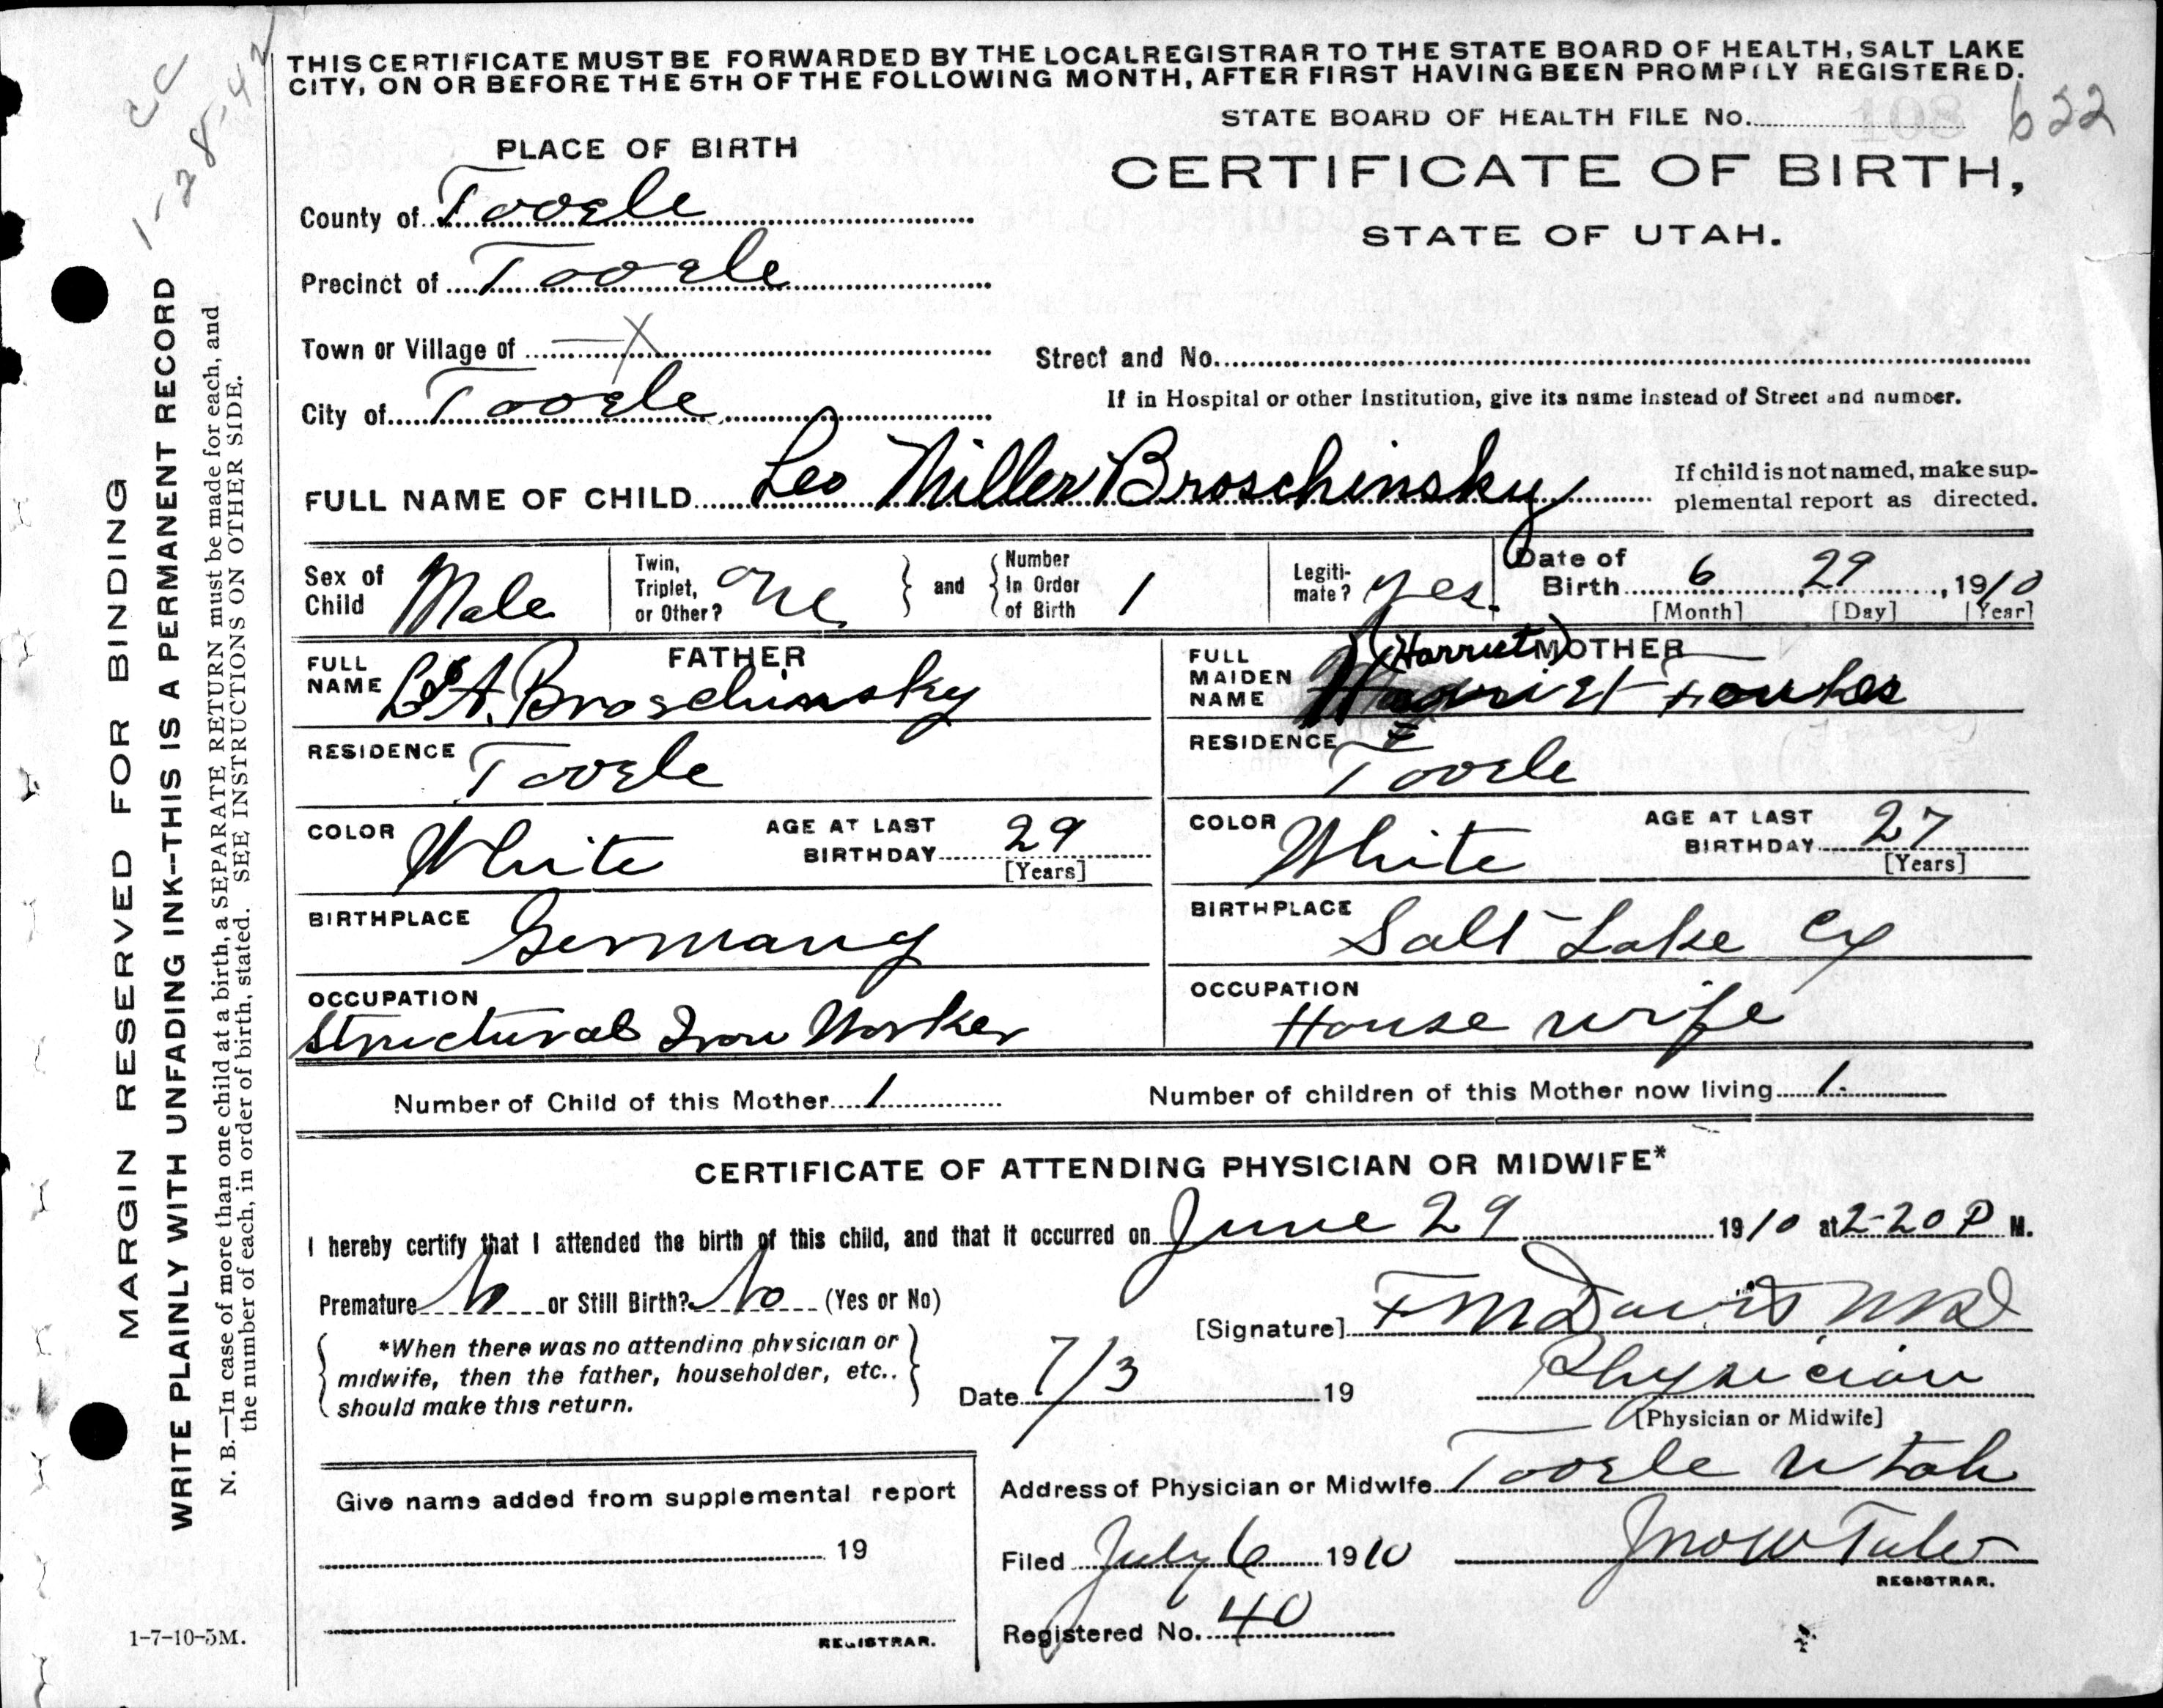 THIS CERTIFICATE MUST BE FORWARDED BY THE LOCAL REGISTRAR TO THE STATE BOARD OF HEALTH, SALT LAKE
CITY, ON OR BEFORE THE 5TH OF THE FOLLOWING MONTH, AFTER FIRST HAVING BEEN PROMPTLY REGISTERED.
CC
1-28-42
STATE BOARD OF HEALTH FILE No. 108 622
PLACE OF BIRTH
CERTIFICATE OF BIRTH,
STATE OF UTAH.
County of Tooele
Precinct of Tooele
Town or Village of —X
Street and No.
City of Tooele
If in Hospital or other Institution, give its name instead of Street and number.
FULL NAME OF CHILD Leo Miller Broschinsky
If child is not named, make sup-
plemental report as directed.
Sex of Child Male
Twin, Triplet, or Other? One
and Number In Order of Birth 1
Legiti-mate? Yes.
Date of Birth 6 29, 1910
[Month] [Day] [Year]
FATHER
FULL NAME A. Broschinsky
MOTHER
FULL MAIDEN NAME (Harriet) Harriet Foulkes
RESIDENCE Tooele
RESIDENCE Tooele
COLOR White AGE AT LAST BIRTHDAY 29
[Years]
COLOR White AGE AT LAST BIRTHDAY 27
[Years]
BIRTHPLACE Germany
BIRTHPLACE Salt Lake Cy
OCCUPATION
Structural Iron Worker
OCCUPATION
House wife
Number of Child of this Mother 1
Number of children of this Mother now living 1.
CERTIFICATE OF ATTENDING PHYSICIAN OR MIDWIFE*
I hereby certify that I attended the birth of this child, and that it occurred on June 29 1910 at 2-20 P M.
Premature No or Still Birth? No (Yes or No)
[Signature] F M Davis MD
*When there was no attending physician or
midwife, then the father, householder, etc..
should make this return.
Date 7/3 19
Physician
[Physician or Midwife]
Address of Physician or Midwife Tooele Utah
Give name added from supplemental report
19
REGISTRAR.
Filed July 6 1910 Jno W Tate
REGISTRAR.
Registered No. 40
1-7-10-5M.
MARGIN RESERVED FOR BINDING
WRITE PLAINLY WITH UNFADING INK--THIS IS A PERMANENT RECORD
N. B.—In case of more than one child at a birth, a SEPARATE RETURN must be made for each, and
the number of each, in order of birth, stated. SEE INSTRUCTIONS ON OTHER SIDE.